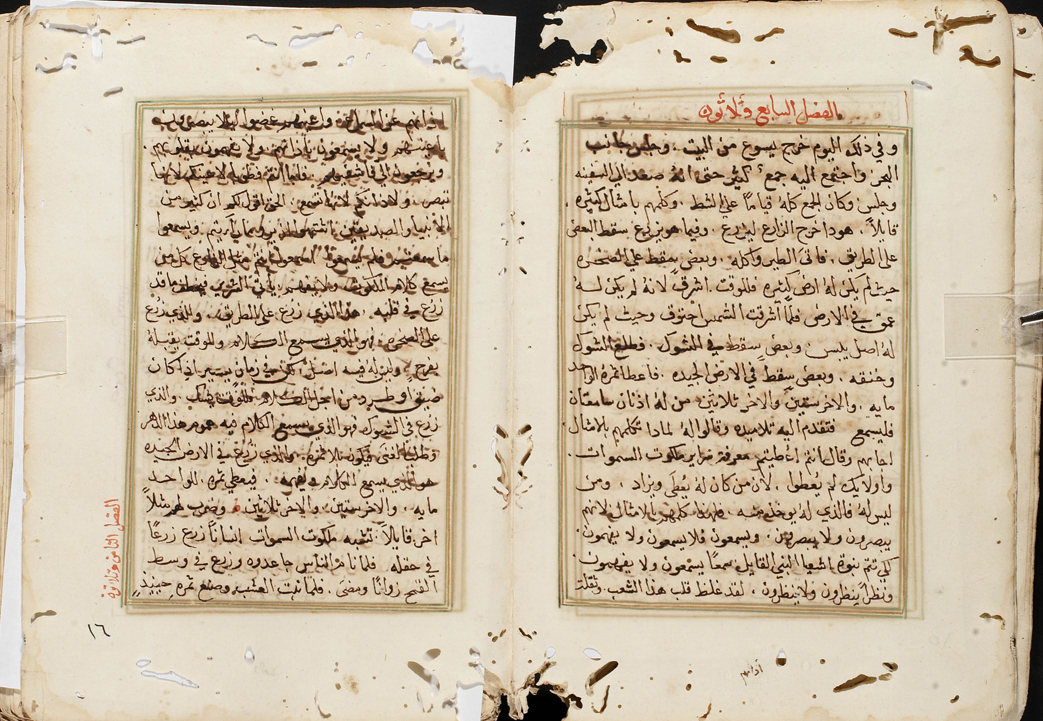 الفصل السابع وثلاثون
وفي ذلك اليوم خرج يسوع من البيت . وجلس جانب
البحر واجتمع اليه جمع كثير حتى انه صعد الي السفينه
وجلس وكان الجمع كله قياما علي الشط . وكلمهم بامثال كثيره .
قايلا . هوذا خرج الزارع ليزرع . وفيما هو يزرع سقط البعض
علي الطريق . فاتي الطير واكله . وبعض سقط علي الصخره
حيث لم يكن له ارض كثيره فللوقت اشرق لانه لم يكن له
عمق في الارض فلما اشرقت الشمس وحيث لم يكن
له اصل يبس . وبعض سقط في الشوك . فطلع الشوك
وخنقه . وبعض سقط في الارض الجيده . فاعطا ثمرة الواحد
مايه . والاخر ستين والاخر ثلاثين . من له اذنان سامعتان
فليسمع فتقدم اليه تلاميذه وقالوا له لماذا تكلمهم بالامثال
اجابهم وقال انتم اعطيتم معرفة سراير ملكوت السموات .
واولايك لم يعطوا . لان من كان له يعطي ويزاد . ومن
ليس له فالذي له يوخذ منه . فلهذا كلمهم بالامثال لانهم
يبصرون ولا يبصرون . ويسمعون فلا يسمعون ولا يفهمون
لكي تتم نبوة اشعيا النبي القايل سمعا يسمعون ولا يفهمون
ونظرا ينظرون ولا ينظرون . لقد غلظ قلب هذا الشعب . وثقلت
اذانهم
اذانهم عن السمع وغمضوا
ولا يسمعون باذانهم ولا يفهمون بقلوبهم .
ويرجعون الي فاشفيهم . فاما انتم فطوبي لاعينكم لانها
تبصر . ولاذانكم لانها تسمع . الحق اقول لكم ان كثير من
الانبيا والصديقين اشتهوا ان يروا ما رايتم . ويسمعوا
ما سمعتم فلم يسمعوا اسمعوا انتم مثل الزارع كل من
يسمع كلام الملكوت ولا يفهم . ياتي الشرير فيخطف ما قد
زرع في قلبه . هذا الذي زرع علي الطريق . والذي زرع
علي الصخره . هو الذي يسمع الكلام وللوقت يقبله
بفرح . وليس له فيه اصل لكن في زمان يسير اذا كان
ضيق او طرد من اجل الكلام للوقت يشك . والذي
زرع في الشوك فهو الذي يسمع الكلام فيه هموم هذا الدهر
الغني فيكون بلا ثمره . والذي زرع في الارض الجيده
هو الذي يسمع الكلام ويفهمه . فيعطي ثمره . الواحد
مايه . والاخر ستين . والاخر ثلاثين وضرب لهم مثلا
الفصل الثامن وثلاثون
اخر قايلا . تشبه ملكوت السموات انسانا زرع زرعا
في حقله . فلما نام الناس جا عدوه وزرع في وسط
القمح زوانا ومضي . فلما نبت العشب وصنع ثمره حينيذ
١٦